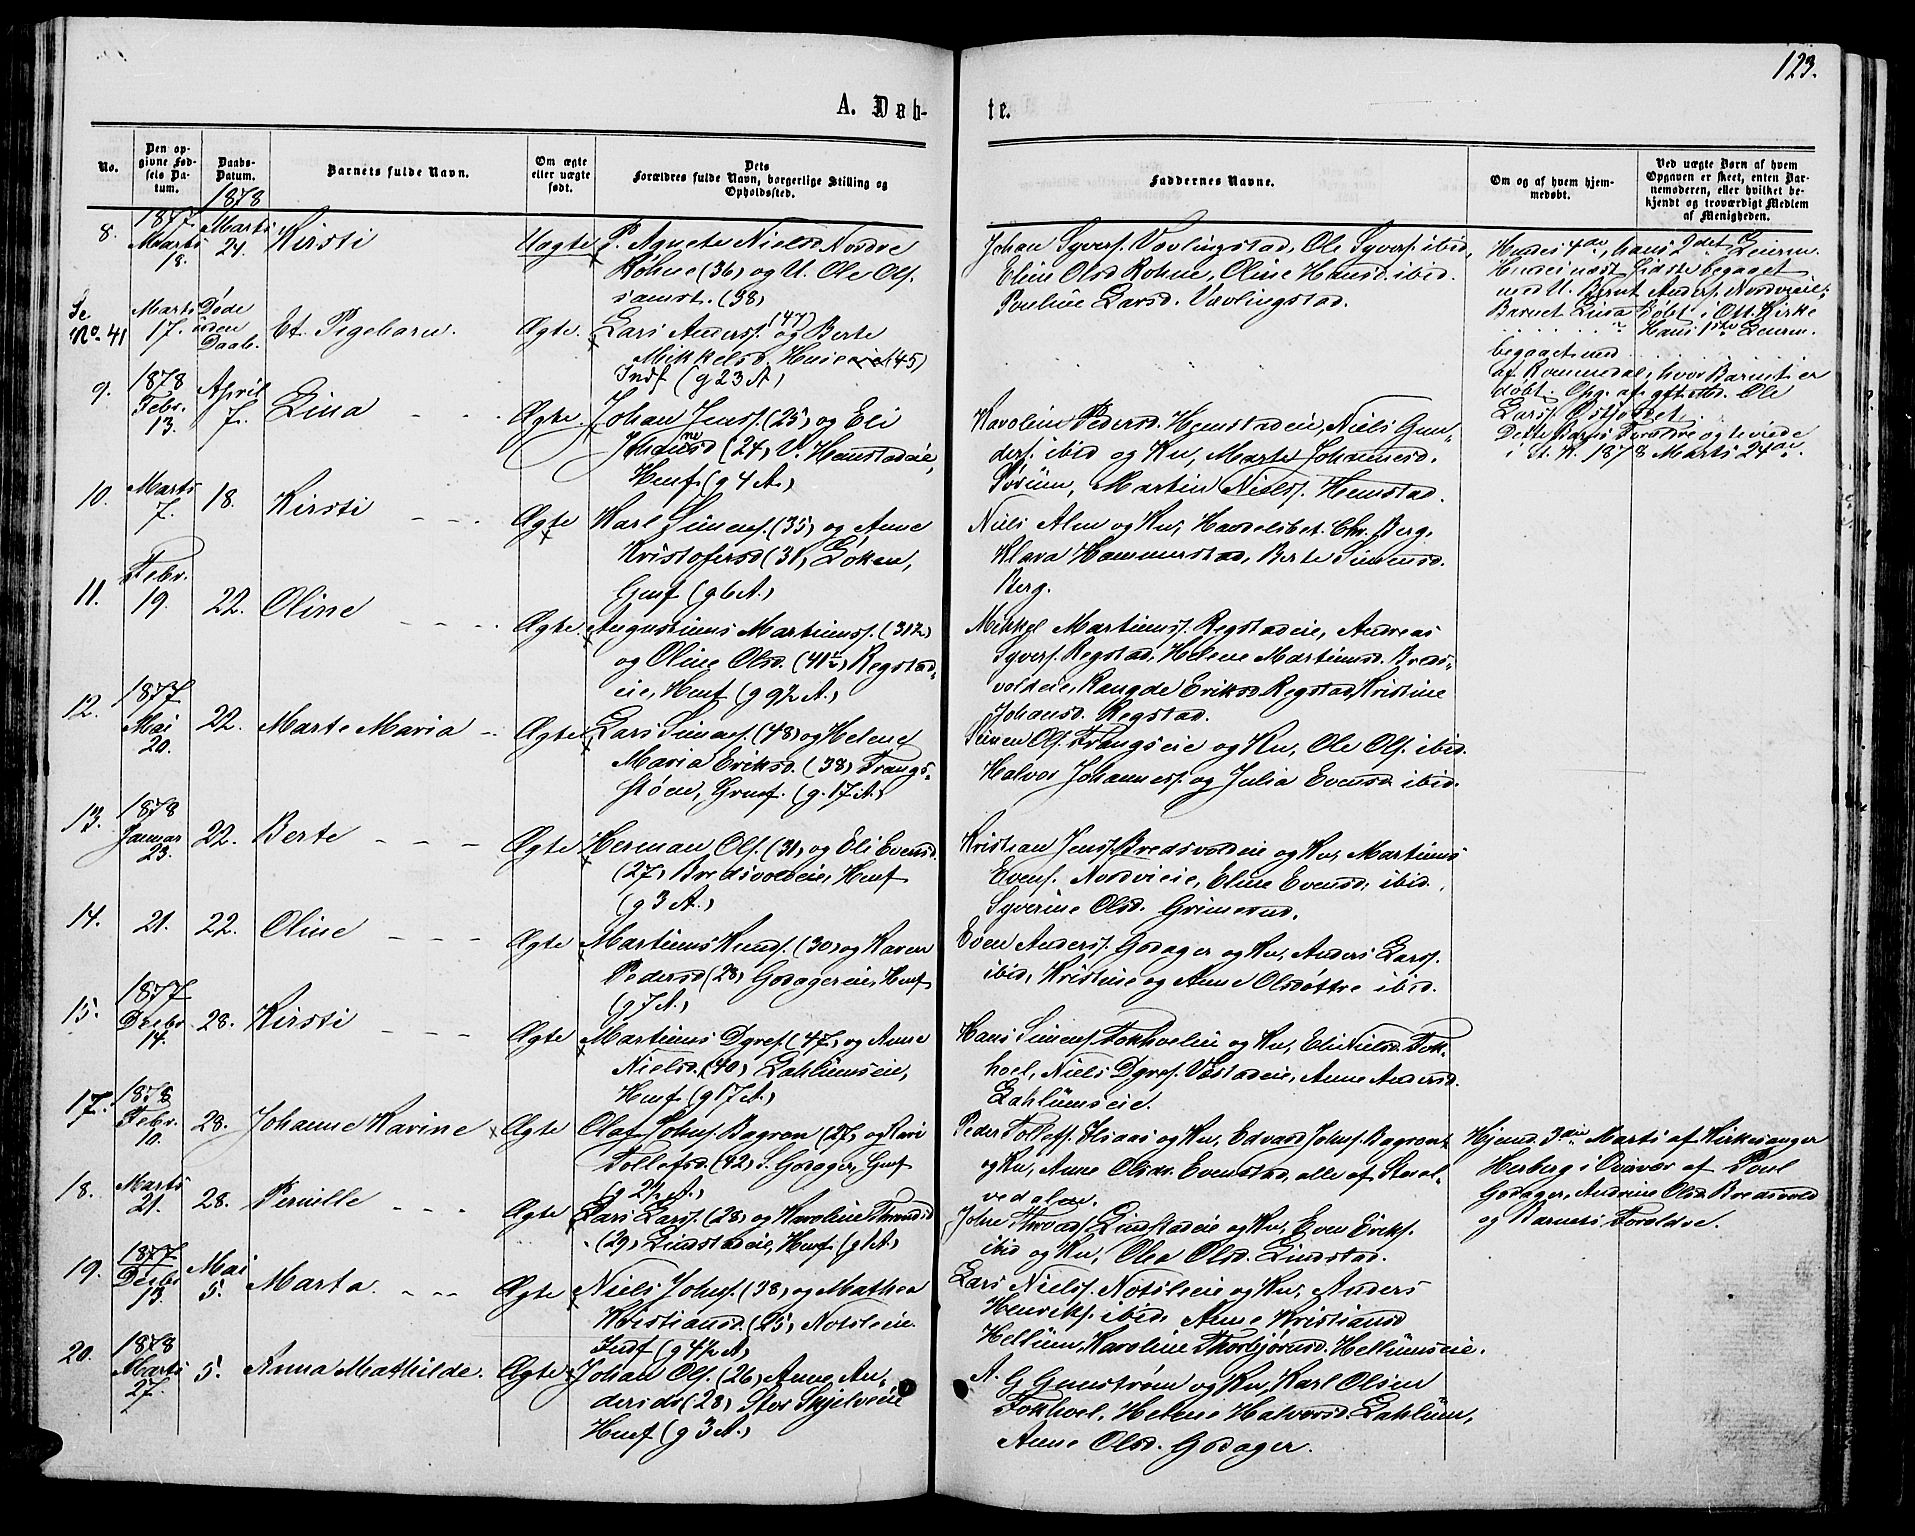 123.
A. Døb-
te.
No.
Den op-
givne Fød-
sels Da-
tum.
Daabs-
Datum.
1878
Barnets fulde Navn.
Om ægte
eller uægte
født.
Dets
Forældres fulde Navn, borgerlige Stilling og
Opholdssted.
Faddernes Navne.
Om og af hvem hjem-
medøbt.
Ved uægte Børn af hvem
Opgaven er skeet, enten Bar-
nemoderen, eller hvilket be-
kjendt og troværdigt Medlem
af Menigheden.
8.
1877
Marts
18.
Marts
24.
Kirsti
Uægte
P. Agnete Nielsd. Nordre
Röhne (36) og U. Ole Ols.
samst. (38)
Johan Syvers. Vavlingstad, Ole Syvers. ibid,
Eline Olsd Rohne, Oline Hansd. ibid.
Pauline Larsd. Vavlingstad.
Hendes 4de, hans 2det Leierm.
Hendes næst sidste begaaet
med U. Bernt Anders. Nordvieie;
Barnet Lina døbt i Ott. Kirke
Hans 1ste Leierm.
begaaet med
af Rommedal, hvor Barnet er
døbt. Opg. af gftmd. Ole
Lars.
Dette Barns Forældre ogteviede
i St. K. 1878 Marts 24de.
Se
No. 41
Marts
17.
Døde
uden
Daab.
Et Pigebarn.
Ægte.
Lars Anderss. (47) og Berte
Mikkelsd. Huseeie (45)
Indf (g 23 A)
9.
1878
Febr.
13.
April
7.
Lina
Ægte.
Johan Jenss. (25) og Eli
Johannesd (24) V. Hemstadeie,
Husf. (g 4 A.)
Karoline Pedersd. Hemstadeie, Niels Gun-
ders. ibid og Ku, Marte Johannesd.
Sörum, Martin Niels. Hemstad.
10.
Marts
7.
18.
Kirsti
Ægte
Karl Simens. (35) og Anne
Kristofersd (31) Löken,
Gmf (g 6 A.)
Niels Alm og Ku, Handelsbet. Chr. Berg,
Klara Hammerstad, Berte Simensd.
Berg.
11.
Febr.
19.
22.
Oline
Ægte.
Augustinus Martinuss. (31½)
og Oline Olsd. (41½) Regstad-
eie, Husf (g 9½ A.)
Mikkel Martinuss. Regstadeie, Andreas
Syvers. Regstad. Helene Martinusd. Breds-
voldeie, Rangde Eriksd. Regstad, Kristine
Johansd. Regstad.
12.
1877
Mai
20.
22.
Marte Maria
Ægte
Lars Simens. (48) og Helene
Maria Eriksd. (38) Frangs-
støen, Grusf. (g. 17 A.)
Simen Ols. Frangseie og Ku, Ole Ols. ibid.
Halvor Johanness. og Julia Evensd. ibid.
13.
1878
Januar
23.
22.
Berte
Ægte
Herman Ols. (31) og Eli Evensd.
(27) Bredsvoldeie, Husf
(g 3 A.)
Kristian Jens. Bredsvoldeie og Ku, Martinus
Evens. Nordvieie, Eline Evensd. ibid.
Syverine Olsd. Grimerud.
14.
21.
22.
Oline
Ægte
Martinus Knuds. (30) og Karen
Pedersd (28) Godagereie, Husf
(g 7 A.)
Even Anders. Godager og Ku, Anders Lars.
ibid, Kristine og Anne Olsdøttre ibid.
15.
1877
Decbr
14.
28.
Kirsti
Ægte
Martinus Dyres. (47) og Anne
Nielsd. (40) Zahlumseie,
Husf (g 17 A.)
Hans Simens. Fokhoeleie og Ku, Eli Nielsd. Fok-
hoel, Niels Dyres. Vöstadeie, Anne Andersd.
Zahlumseie.
17.
1878
Febr.
10.
28.
Johanne Karine
Ægte
Olaf Johns. Bagron (27) og Kari
Tollefsd. (42) S. Godager, Gmf
(g 2½ A.)
Peder Tollefs. Haas og Ku, Edvard Johns. Bagron
og Ku, Anne Olsdr. Evenstad, alle af Storel-
vedalen.
Hjemd. 3die Marts af Kirkesanger
Herberg i Overvær af Poul
Godager, Andrine Olsd. Bredsvold
og Barnets Forældre.
18.
Marts
21.
28.
Pernille
Ægte
Lars Larss. (28) og Karoline Thronsd
(29) Lindstadeie, Husf. (g 1 A.)
Johne Throns. Lindstadeie og Ku, Even Eriks.
ibid og Ku, Olea Olsd. Lindstad.
19.
1877
Decbr
13.
Mai
5.
Marta.
Ægte
Niels Johns. (38) og Mathea
Kristiansd. (25) Notsleie
Indf (g 4½ A)
Lars Niels. Notsleie og Ku, Anders
Henriks. ibid. Anne Kristiansd
Hellum, Karoline Thorbjörnsd. Hellumseie.
20.
1878
Marts
27.
5.
Anna Mathilde.
Ægte
Johan Ols. (26) Anne An-
dersdr (28) Stor Skjelveeie
Husf (g 3 A.)
A. G. Gunström og Ku, Karl Olsen
Fokhoel, Helene Halvorsd. Zahlum,
Anne Olsd. Godager.